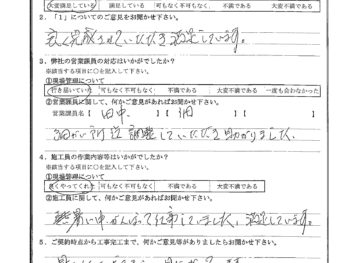 大変満足している 満足している 可もなく不可もなく 不満である 大変不満である
2.「1」についてのご意見をお聞かせ下さい。
良く完成させていただき満足しています。
3. 弊社の営業課員の対応はいかがでしたか?
※該当する項目に○を記入して下さい。
①現場管理について
行き届いている 可もなく不可もなく 不満である 大変不満である 一度も会わなかった
②営業課員に関して、何かご意見があればお聞かせ下さい。
営業課員名【 田中 】
細かい所迄調整していただき助かりました.
4. 施工員の作業内容等はいかがでしたか?
※該当する項目に○を記入して下さい。
①現場管理について
良くやってくれた 可もなく不可もなく 不満である 大変不満である
②施工員に関して、何かご意見があればお聞かせ下さい。
中がんばって仕事していました、満足しています。
5. ご契約時点から工事完工まで、何かご意見等がありましたらお聞かせ下さい。